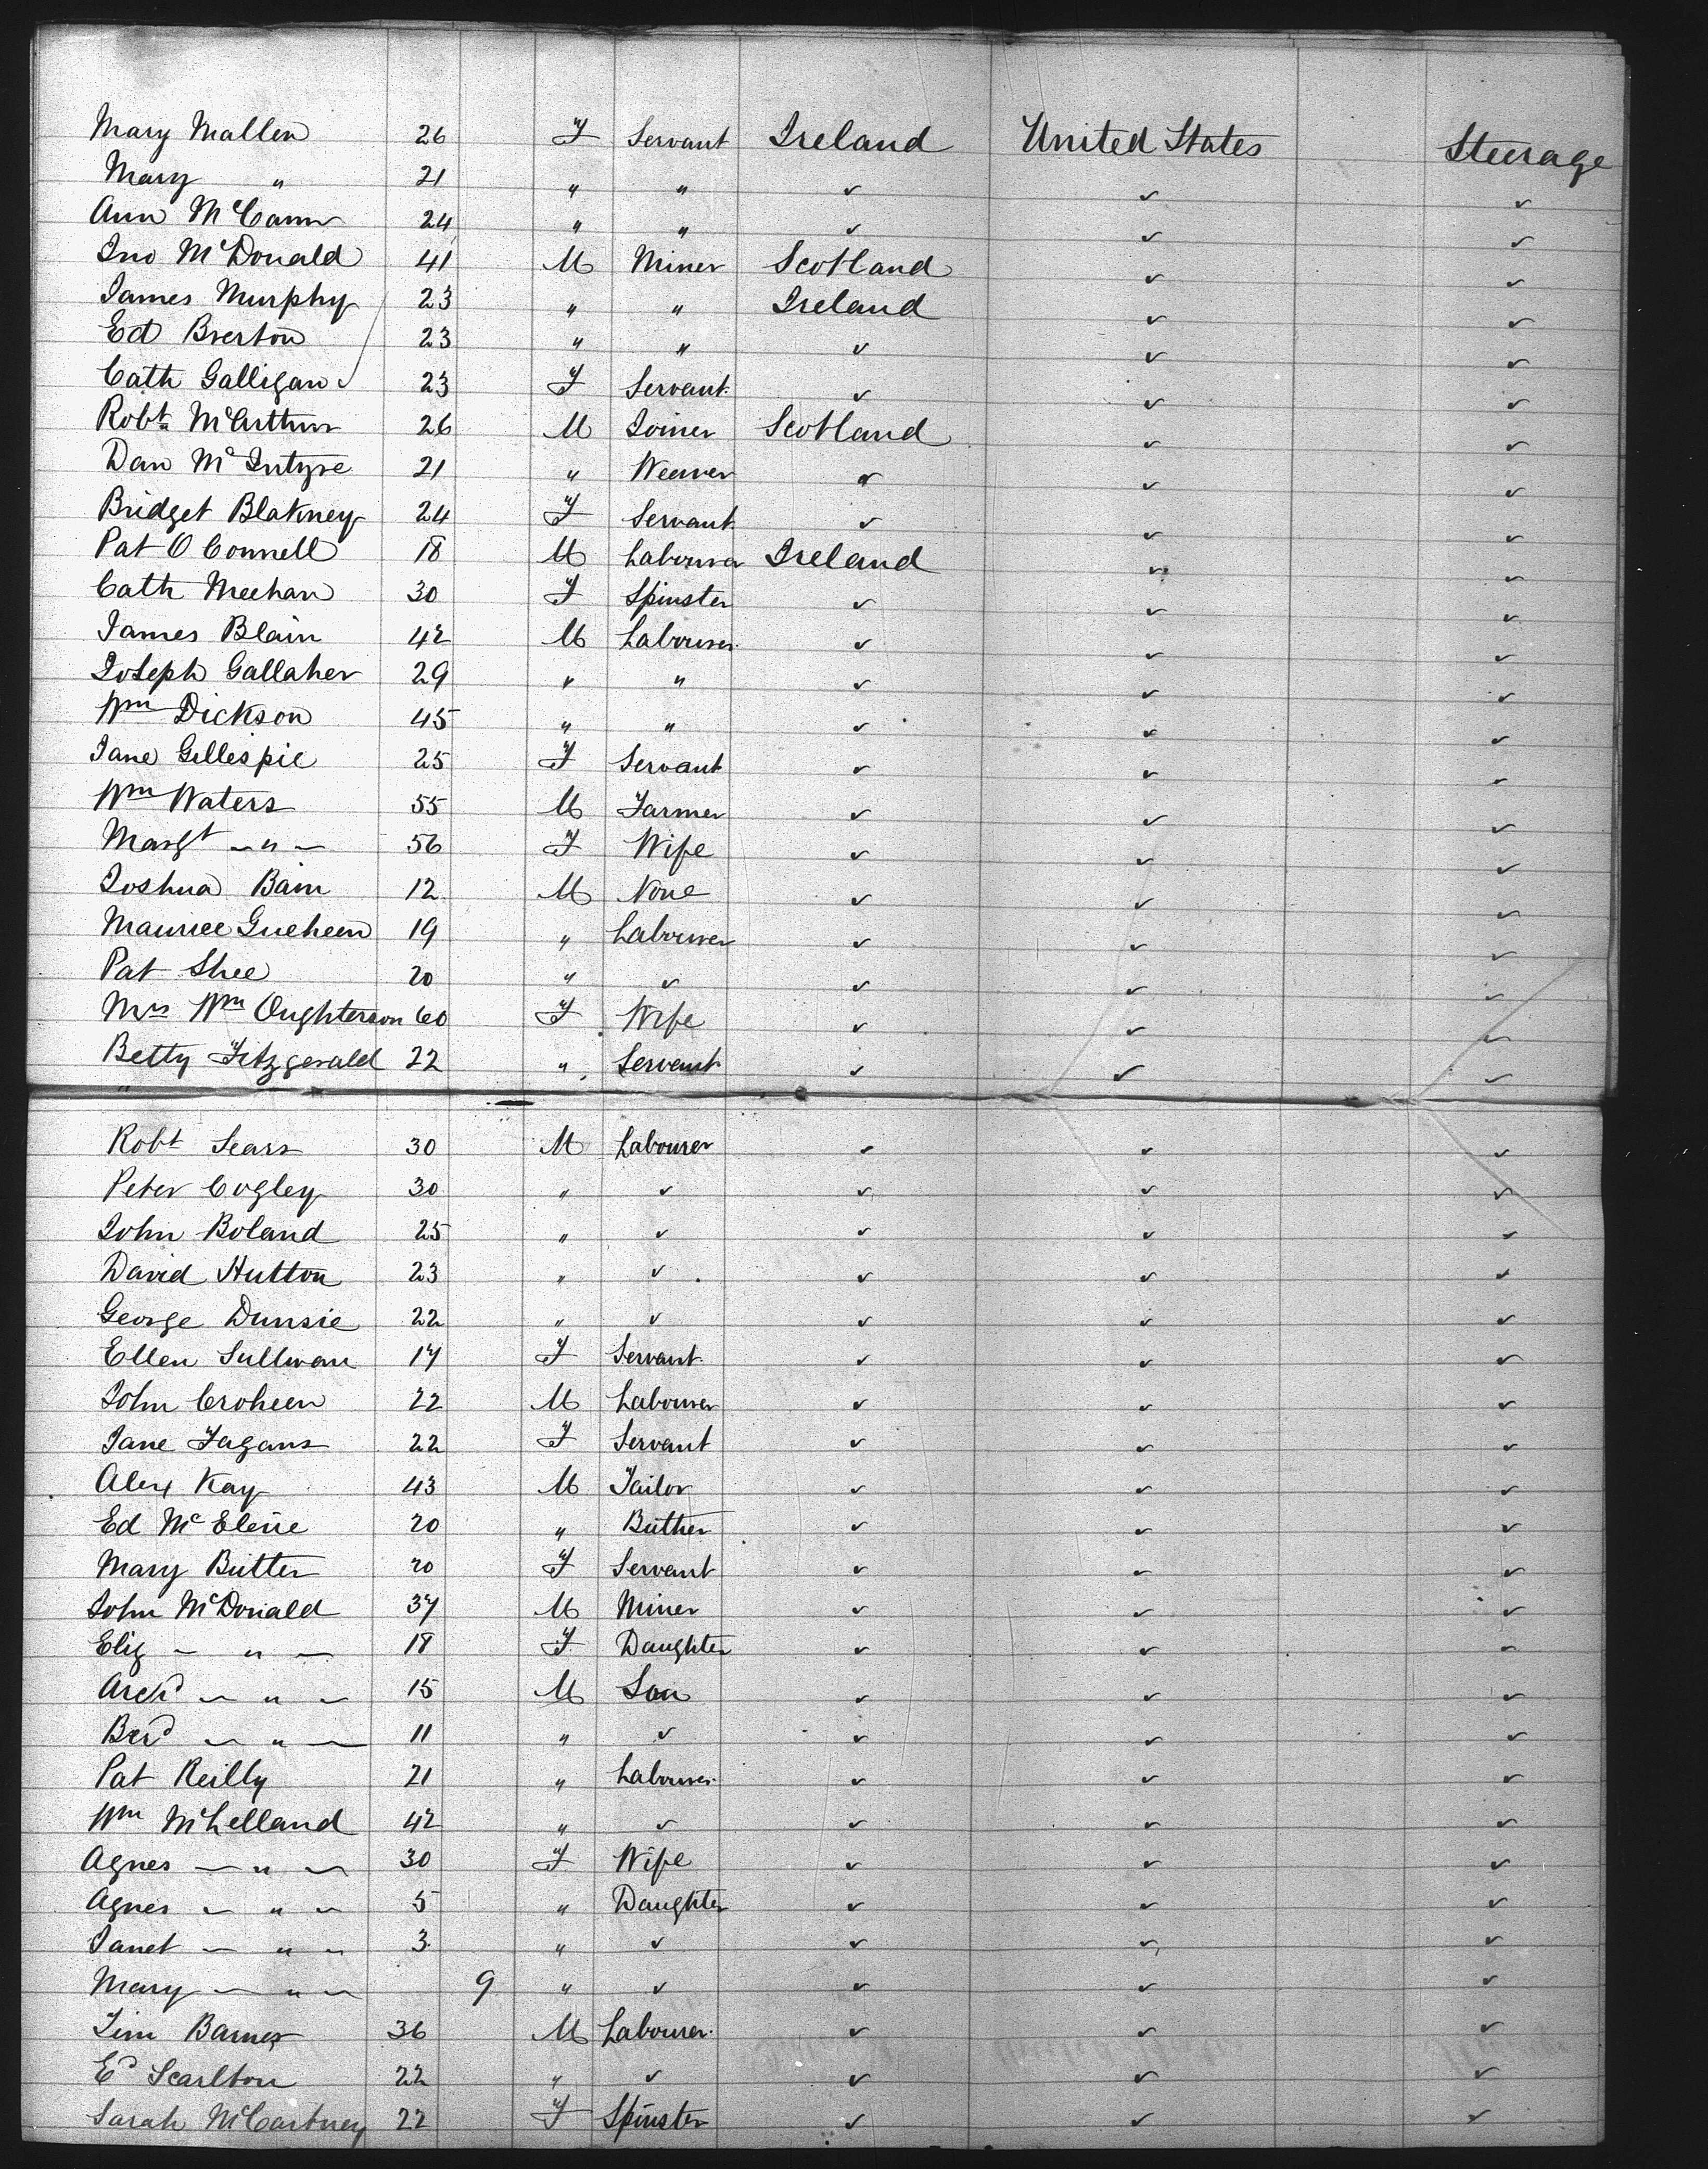 Mary Mallen 26 F Servant Ireland United States Steerage
Mary " 21 " " ✓ ✓ ✓
Ann McCann 24 " " ✓ ✓ ✓
Jno McDonald 41 M Miner Scotland ✓ ✓
James Murphy 23 " " Ireland ✓ ✓
Ed Brerton 23 " " ✓ ✓ ✓
Cath Galligan 23 F Servant ✓ ✓ ✓
Robt McArthur 26 M Joiner Scotland ✓ ✓
Dan McIntyre 21 " Weaver ✓ ✓ ✓
Bridget Blakney 24 F Servant ✓ ✓ ✓
Pat O Connell 18 M Labourer Ireland ✓ ✓
Cath Meehan 30 F Spinster ✓ ✓ ✓
James Blain 42 M Labourer ✓ ✓ ✓
Joseph Gallaher 29 " " ✓ ✓ ✓
Wm Dickson 45 " " ✓ ✓ ✓
Jane Gillespie 25 F Servant ✓ ✓ ✓
Wm Waters 55 M Farmer ✓ ✓ ✓
Margt — " — 56 F Wife ✓ ✓ ✓
Joshua Bain 12 M None ✓ ✓ ✓
Maurice Gueheen 19 " Labourer ✓ ✓ ✓
Pat Shee 20 " ✓ ✓ ✓ ✓
Mrs Wm Oughterson 60 F Wife ✓ ✓ ✓
Betty Fitzgerald 22 " Servant ✓ ✓ ✓
Robt Sears 30 M Labourer ✓ ✓ ✓
Peter Cogley 30 " ✓ ✓ ✓ ✓
John Boland 25 " ✓ ✓ ✓ ✓
David Hutton 23 " ✓ ✓ ✓ ✓
George Dunsie 22 " ✓ ✓ ✓ ✓
Ellen Sullivan 17 F Servant ✓ ✓ ✓
John Croheen 22 M Labourer ✓ ✓ ✓
Jane Fagans 22 F Servant ✓ ✓ ✓
Alex Kay 43 M Tailor ✓ ✓ ✓
Ed 20 " ✓ ✓ ✓
Mary Butter 20 F Servant ✓ ✓ ✓
John McDonald 37 M Miner ✓ ✓ ✓
Eliz — " — 18 F Daughter ✓ ✓ ✓
Archd — " — 15 M Son ✓ ✓ ✓
— " — 11 " ✓ ✓ ✓ ✓
Pat Reilly 21 " Labourer ✓ ✓ ✓
Wm McLelland 42 " ✓ ✓ ✓ ✓
Agnes — " — 30 F Wife ✓ ✓ ✓
Agnes — " — 5 " Daughter ✓ ✓ ✓
Janet — " — 3 " ✓ ✓ ✓ ✓
Mary — " — 9 " ✓ ✓ ✓ ✓
Jim Barnes 36 M Labourer ✓ ✓ ✓
Ed Scarlton 22 " ✓ ✓ ✓ ✓
Sarah McCartney 22 F Spinster ✓ ✓ ✓